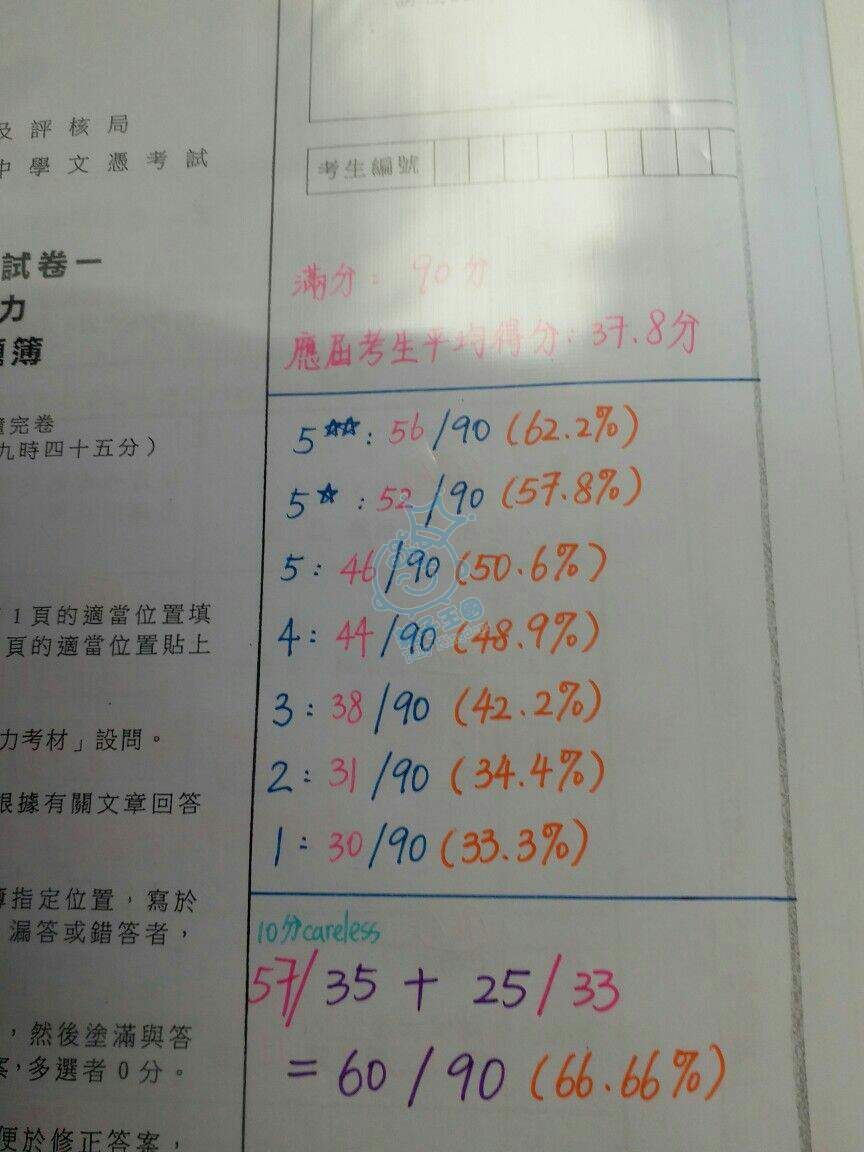 及評核局
中學文憑考試
試卷一
力
簿
完卷
九時四十五分）
1 頁的適當位置填
頁的適當位置貼上
力考材」設問。
根據有關文章回答
指定位置，寫於
漏答或錯答者，
，然後塗滿與答
案，多選者 0 分。
便於修正答案，
考生編號
滿分：90分
應屆考生平均得分：37.8分
5☆☆: 56/90 (62.2%)
5☆: 52/90 (57.8%)
5: 46/90 (50.6%)
4: 44/90 (48.9%)
3: 38/90 (42.2%)
2: 31/90 (34.4%)
1: 30/90 (33.3%)
王國
10分careless
57/35 + 25/33
= 60/90 (66.66%)